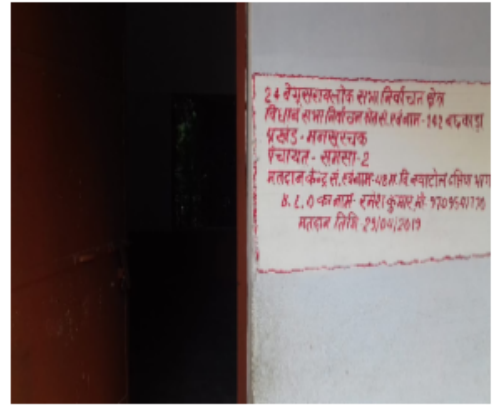 24 बेगूसराय लोक सभा निर्वाचन क्षेत्र
विधान सभा निर्वाचन क्षेत्र सं. एवं नाम - 142
प्रखंड - मनसुरचक
पंचायत - समसा-2
मतदान केन्द्र सं. एवं नाम - दक्षिण भाग
B.L.O का नाम - रमेश कुमार, मो. 9709597770
मतदान तिथि 29/04/2019